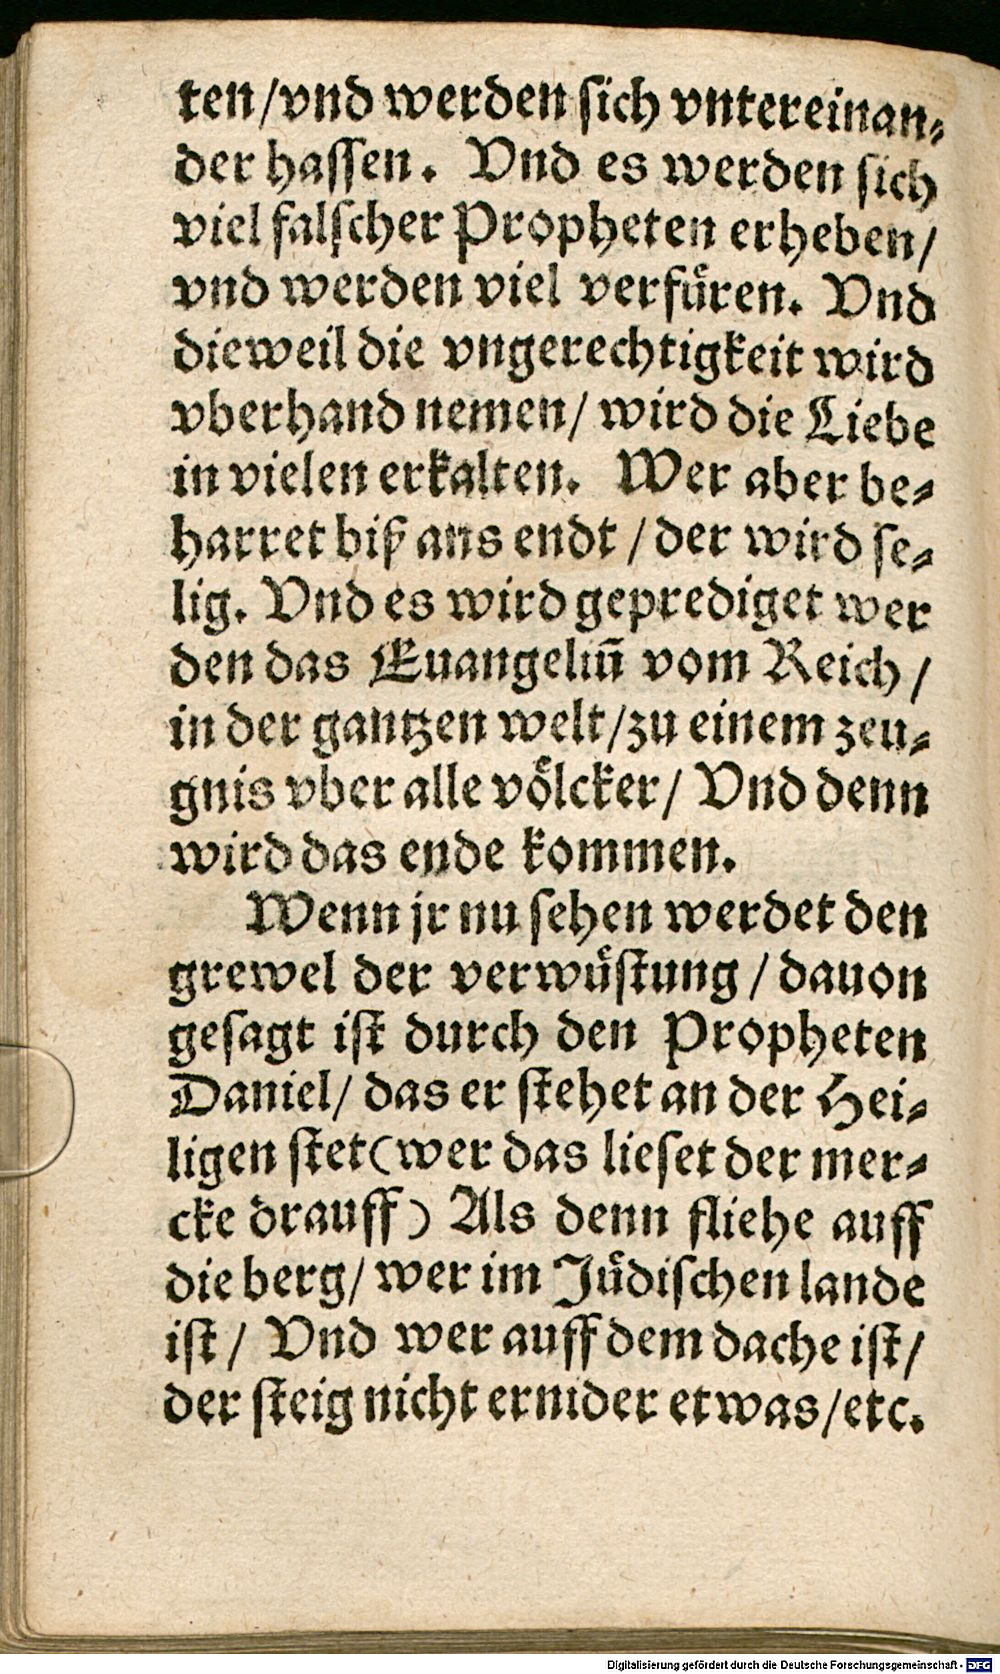 ten/vnd werden ſich vntereinan⸗
der haſſen. Vnd es werden ſich
viel falſcher Propheten erheben/
vnd werden viel verfuͤren. Vnd
dieweil die vngerechtigkeit wird
vberhand nemen/ wird die Liebe
in vielen erkalten. Wer aber be⸗
harret biß ans endt / der wird ſe⸗
lig. Vnd es wird geprediget wer
den das Euangeliũ vom Reich /
in der gantzen welt/zu einem zeu⸗
gnis vber alle voͤlcker/ Vnd denn
wird das ende kommen.
Wenn jr nu ſehen werdet den
grewel der verwuͤſtung / dauon
geſagt iſt durch den Propheten
Daniel/ das er ſtehet an der Hei⸗
ligen ſtet(wer das lieſet der mer⸗
cke drauff) Als denn fliehe auff
die berg/ wer im Juͤdiſchen lande
iſt/ Vnd wer auff dem dache iſt/
der ſteig nicht ernider etwas/etc.
Digitalisierung gefördert durch die Deutsche Forschungsgemeinschaft - DFG